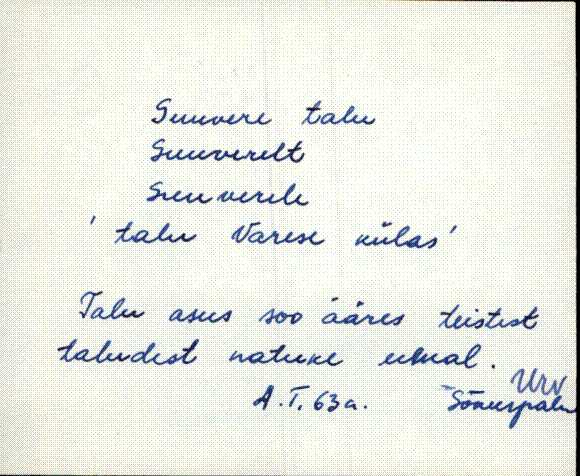 Suuvere talu
Suuverelt
Suuverele
' talu Varese külas'
Talu asus soo ääres teistest
taludest natuke eemal.
Urv
A.T. 63 a. Sõnuspalu